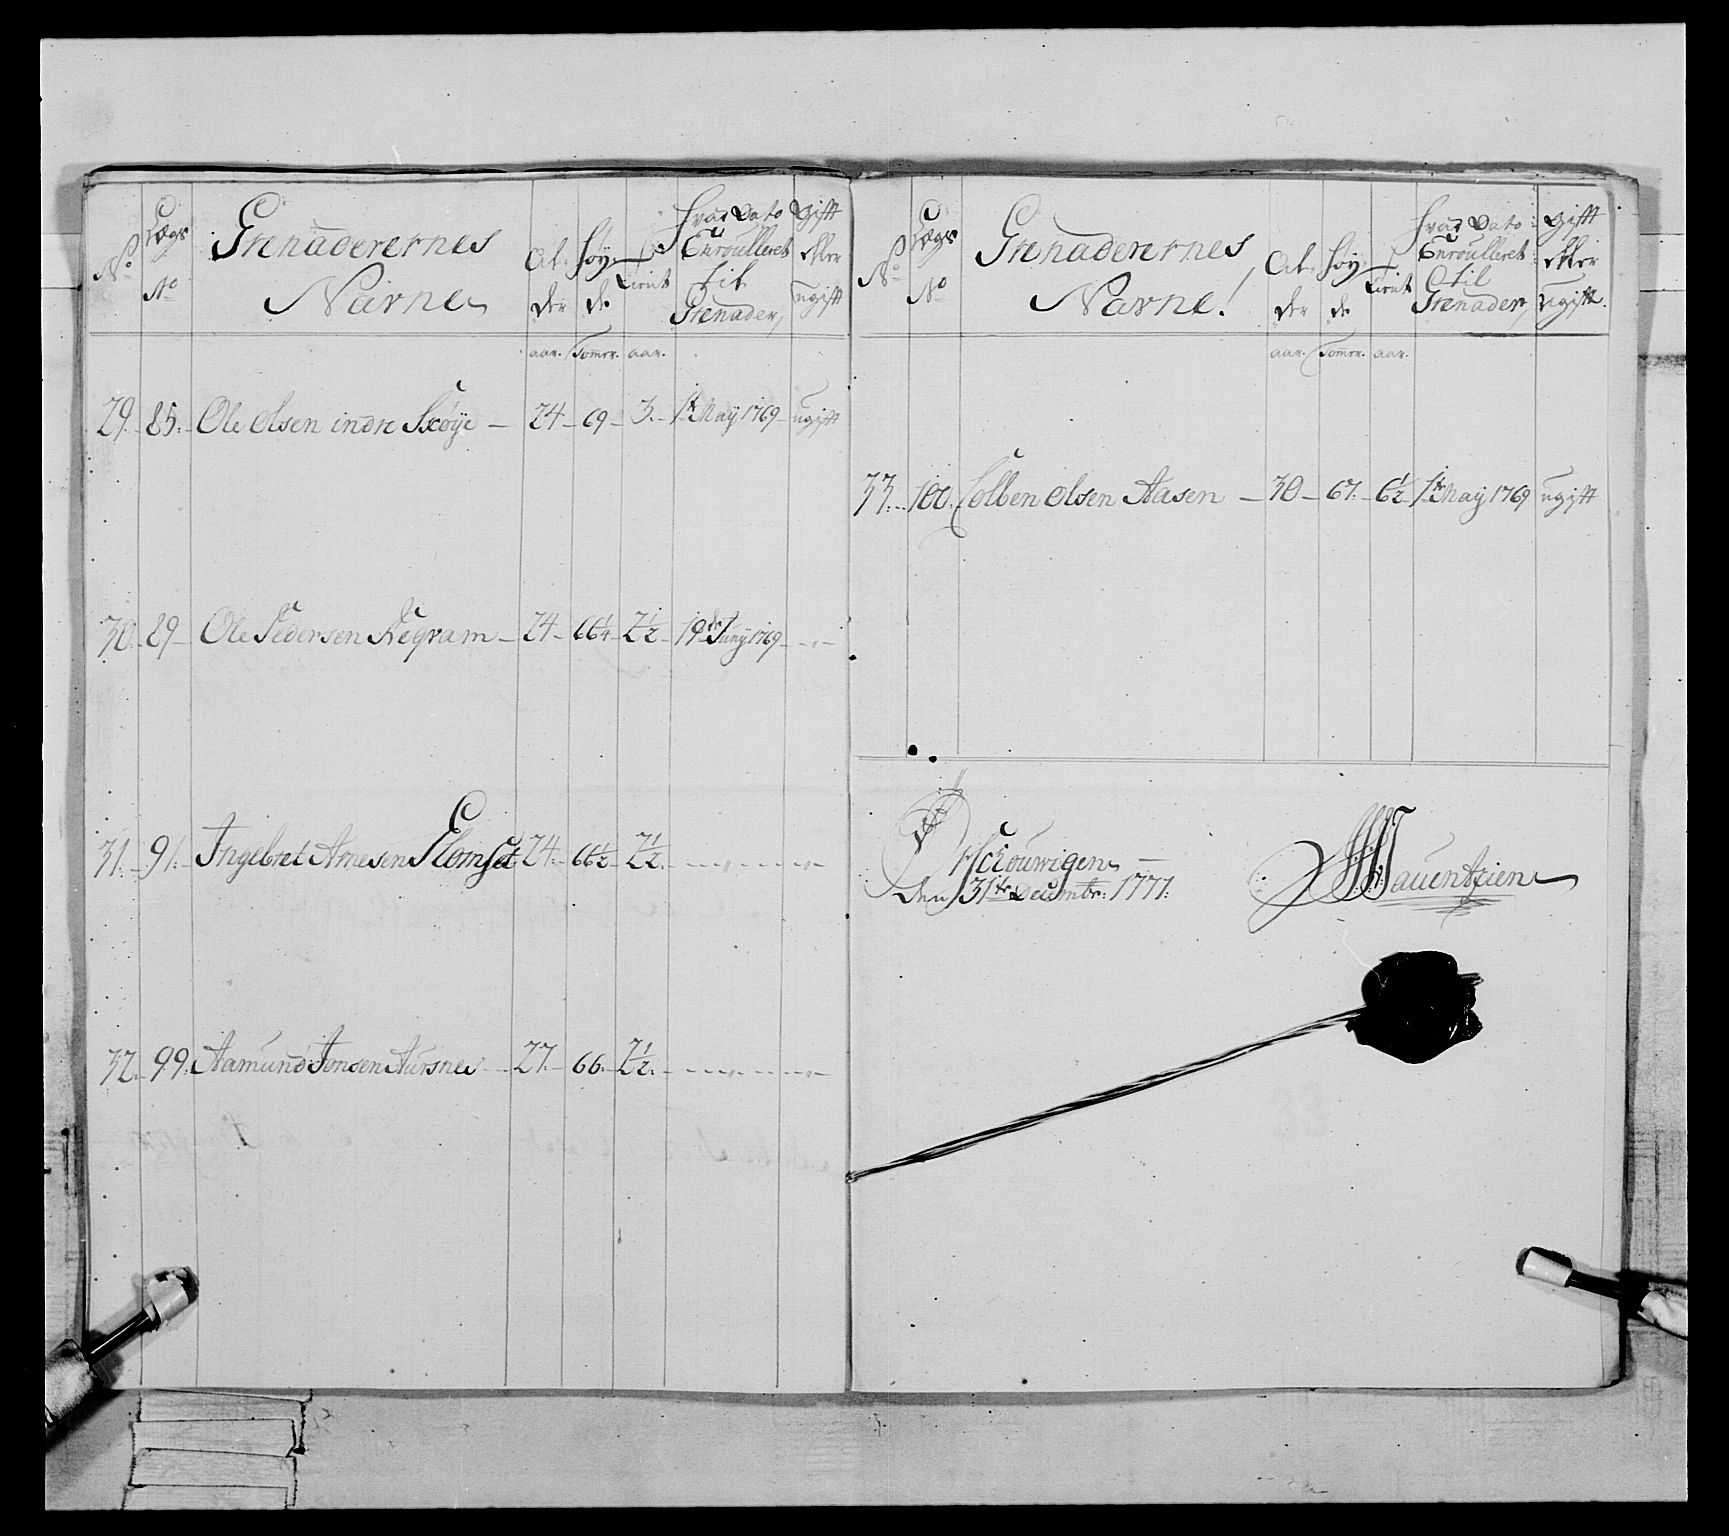 No
Lægs No
Grenaderernes Navne
Al-der
Høy-de
Tient
Hvad Dato Enroulleret til Grenader,
Gift eller ugift
aar. Tomer. aar.
29. 85. Ole Olsen indre Skøye – 24 – 69 – 3. – 1te May 1769 – ugift
30. 89 – Ole Pedersen Regvam – 24 – 66¼ – 2½ – 19de Juny 1769 – - " -
31. – 91. Ingebret Arnesen Flomset 24. 66½ 2½. - - - " - - - - " -
32. – 99. Aamund Jonsen Aursnes – 27. – 66. 2½. - - - " - - - - " -
No
Lægs No
Grenaderernes Navne!
Al-der
Høy-de
Tient
Hvad Dato Enroulleret til Grenader,
Gift eller ugift.
aar. Tomer. aar.
33. – 100. Colben Olsen Aasen – 30 – 67. – 6½ 1te May 1769 ugift
Schouwigen –
den 31te Decembr: 1771.
Tauentzien